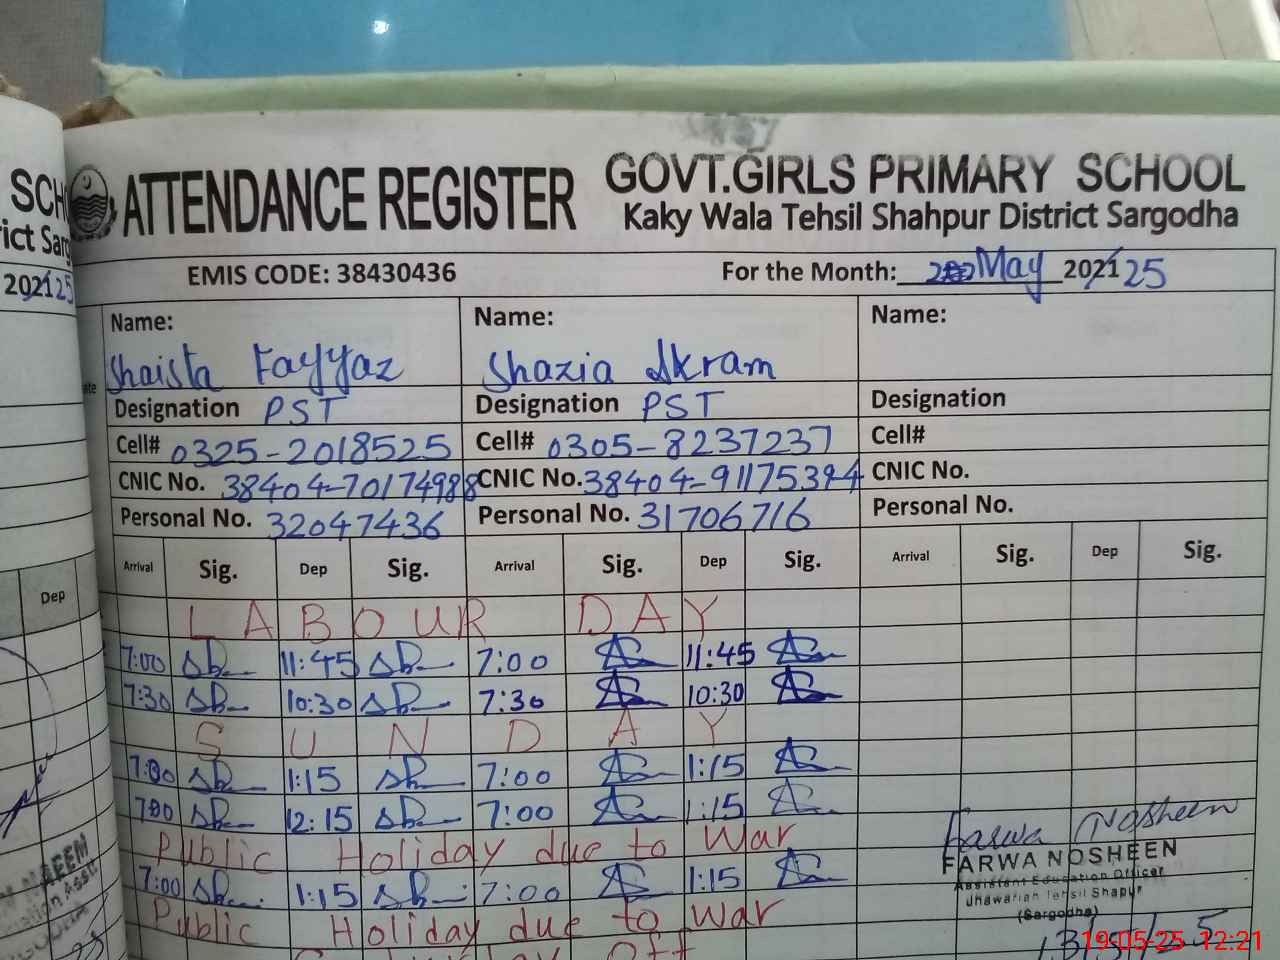 ATTENDANCE REGISTER
GOVT.GIRLS PRIMARY SCHOOL
Kaky Wala Tehsil Shahpur District Sargodha
EMIS CODE: 38430436 For the Month: May 202125
Name: Name: Name:
Shaista Fayyaz Shazia Akram
Designation PST Designation PST Designation
Cell# 0325-2018525 Cell# 0305-8237237 Cell#
CNIC No. 38404-70174988 CNIC No. 38404-91175394 CNIC No.
Personal No. 32047436 Personal No. 31706716 Personal No.
Arrival Sig. Dep Sig. Arrival Sig. Dep Sig. Arrival Sig. Dep Sig.
LABOUR DAY
7:00 11:45 7:00 11:45
7:30 10:30 7:30 10:30
SUNDAY
7:00 1:15 7:00 1:15
7:00 12:15 7:00 1:15
Public Holiday due to War
7:00 1:15 7:00 1:15
Public Holiday due to War
Off
Farwa Nosheen
FARWA NOSHEEN
Assistant Education Officer
Jhawarian Tehsil Shapur
(Sargodha)
19-05-25 12:21
SCH
rict Sarg
202125
Dep
NAEEM